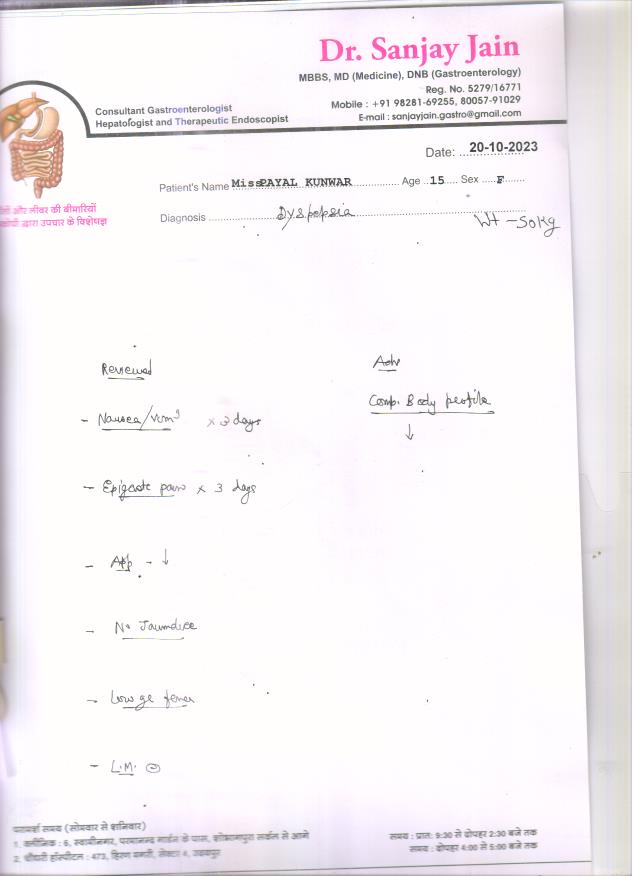 Dr. Sanjay Jain
MBBS, MD (Medicine), DNB (Gastroenterology)
Reg. No. 5279/16771
Mobile : +91 98281-69255, 80057-91029
E-mail : sanjayjain.gastro@gmail.com
Consultant Gastroenterologist
Hepatologist and Therapeutic Endoscopist
और लीवर की बीमारियों
द्वारा उपचार के विशेषज्ञ
Date: 20-10-2023
Patient's Name Miss PAYAL KUNWAR Age 15 Sex F
Diagnosis Dyspepsia
Wt - 50kg
Reviewed
- Nausea/Vom³ x 3 days
- Epigaste pain x 3 days
- App - ↓
- No Jaundice
- Low ge fever
- L.M.
Adv
Comp. Body profile
↓
परामर्श समय (सोमवार से शनिवार)
1. क्लीनिक : 6, स्वामीनगर, परमानन्द गार्डन के पास, शोभागपुरा सर्कल से आगे
2. चौधरी हॉस्पीटल : 473, हिरण मगरी, सेक्टर 4, उदयपुर
समय : प्रात: 9:30 से दोपहर 2:30 बजे तक
समय : दोपहर 4:00 से 5:00 बजे तक